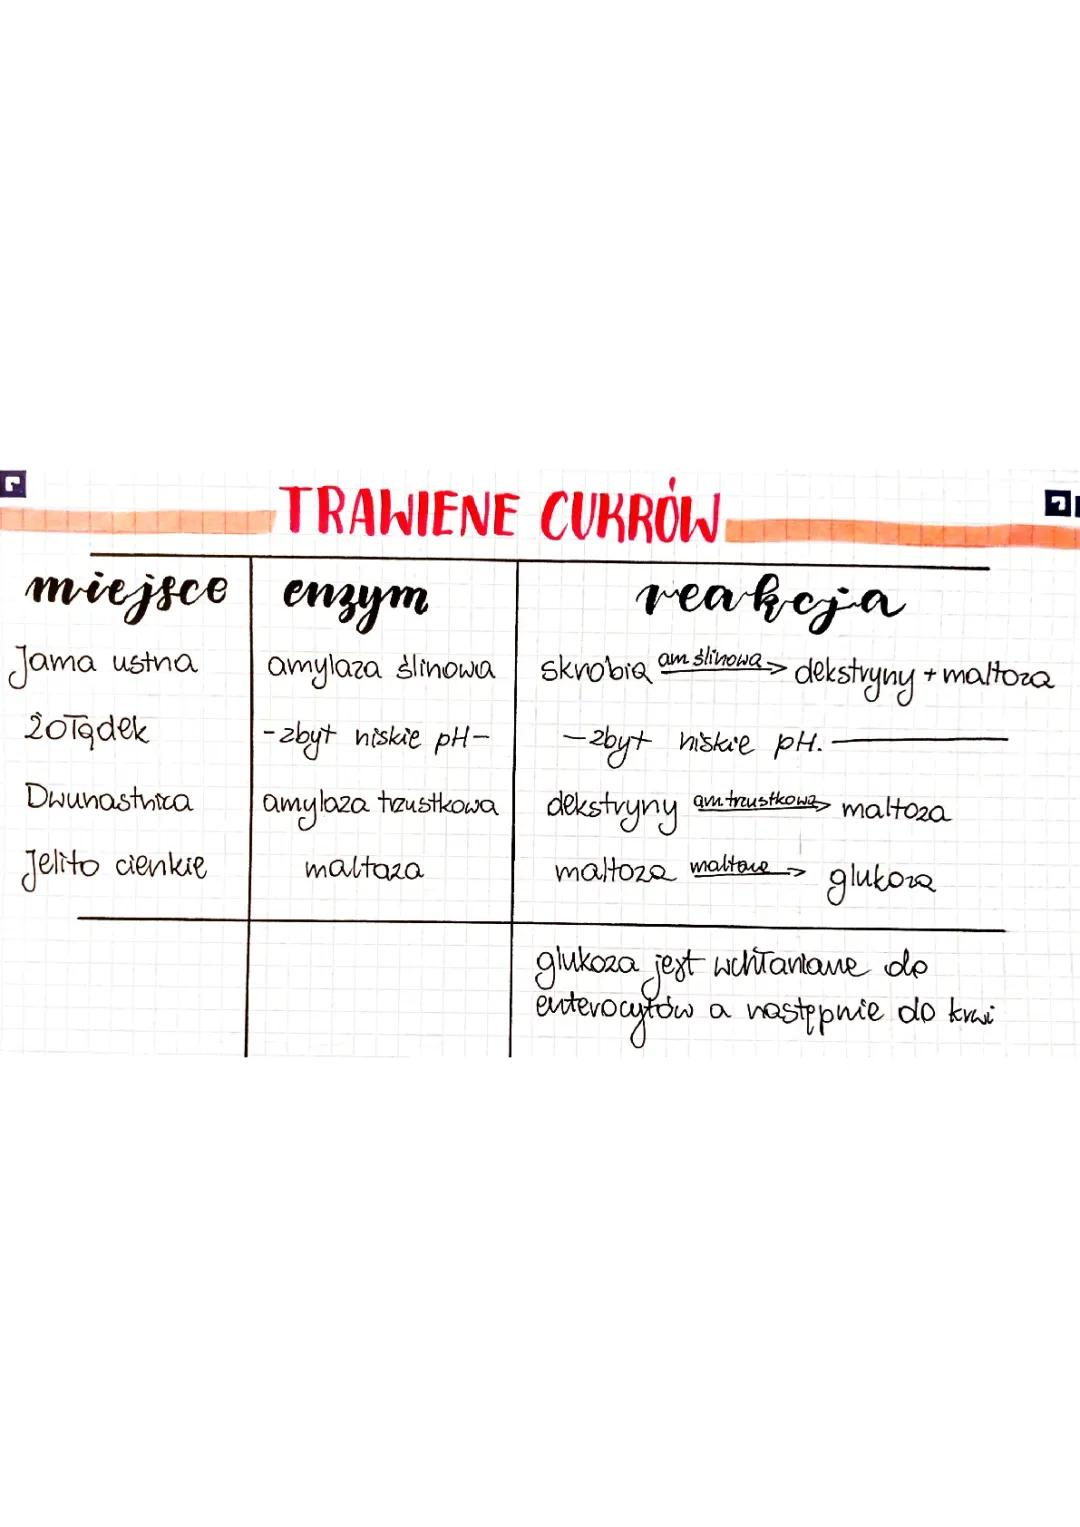 TRAWIENE CUKRÓW
miejsce enzym reakcja
Jama ustna amylaza ślinowa skrobia am ślinowa → dekstryny + maltoza
żołądek -zbyt niskie pH- -zbyt niskie pH.-
Dwunastnica amylaza trzustkowa dekstryny am.trzustkowa → maltoza
Jelito cienkie maltaza maltoza → glukoza
glukoza jest wchłaniane do
enterocytów a następnie do krwi